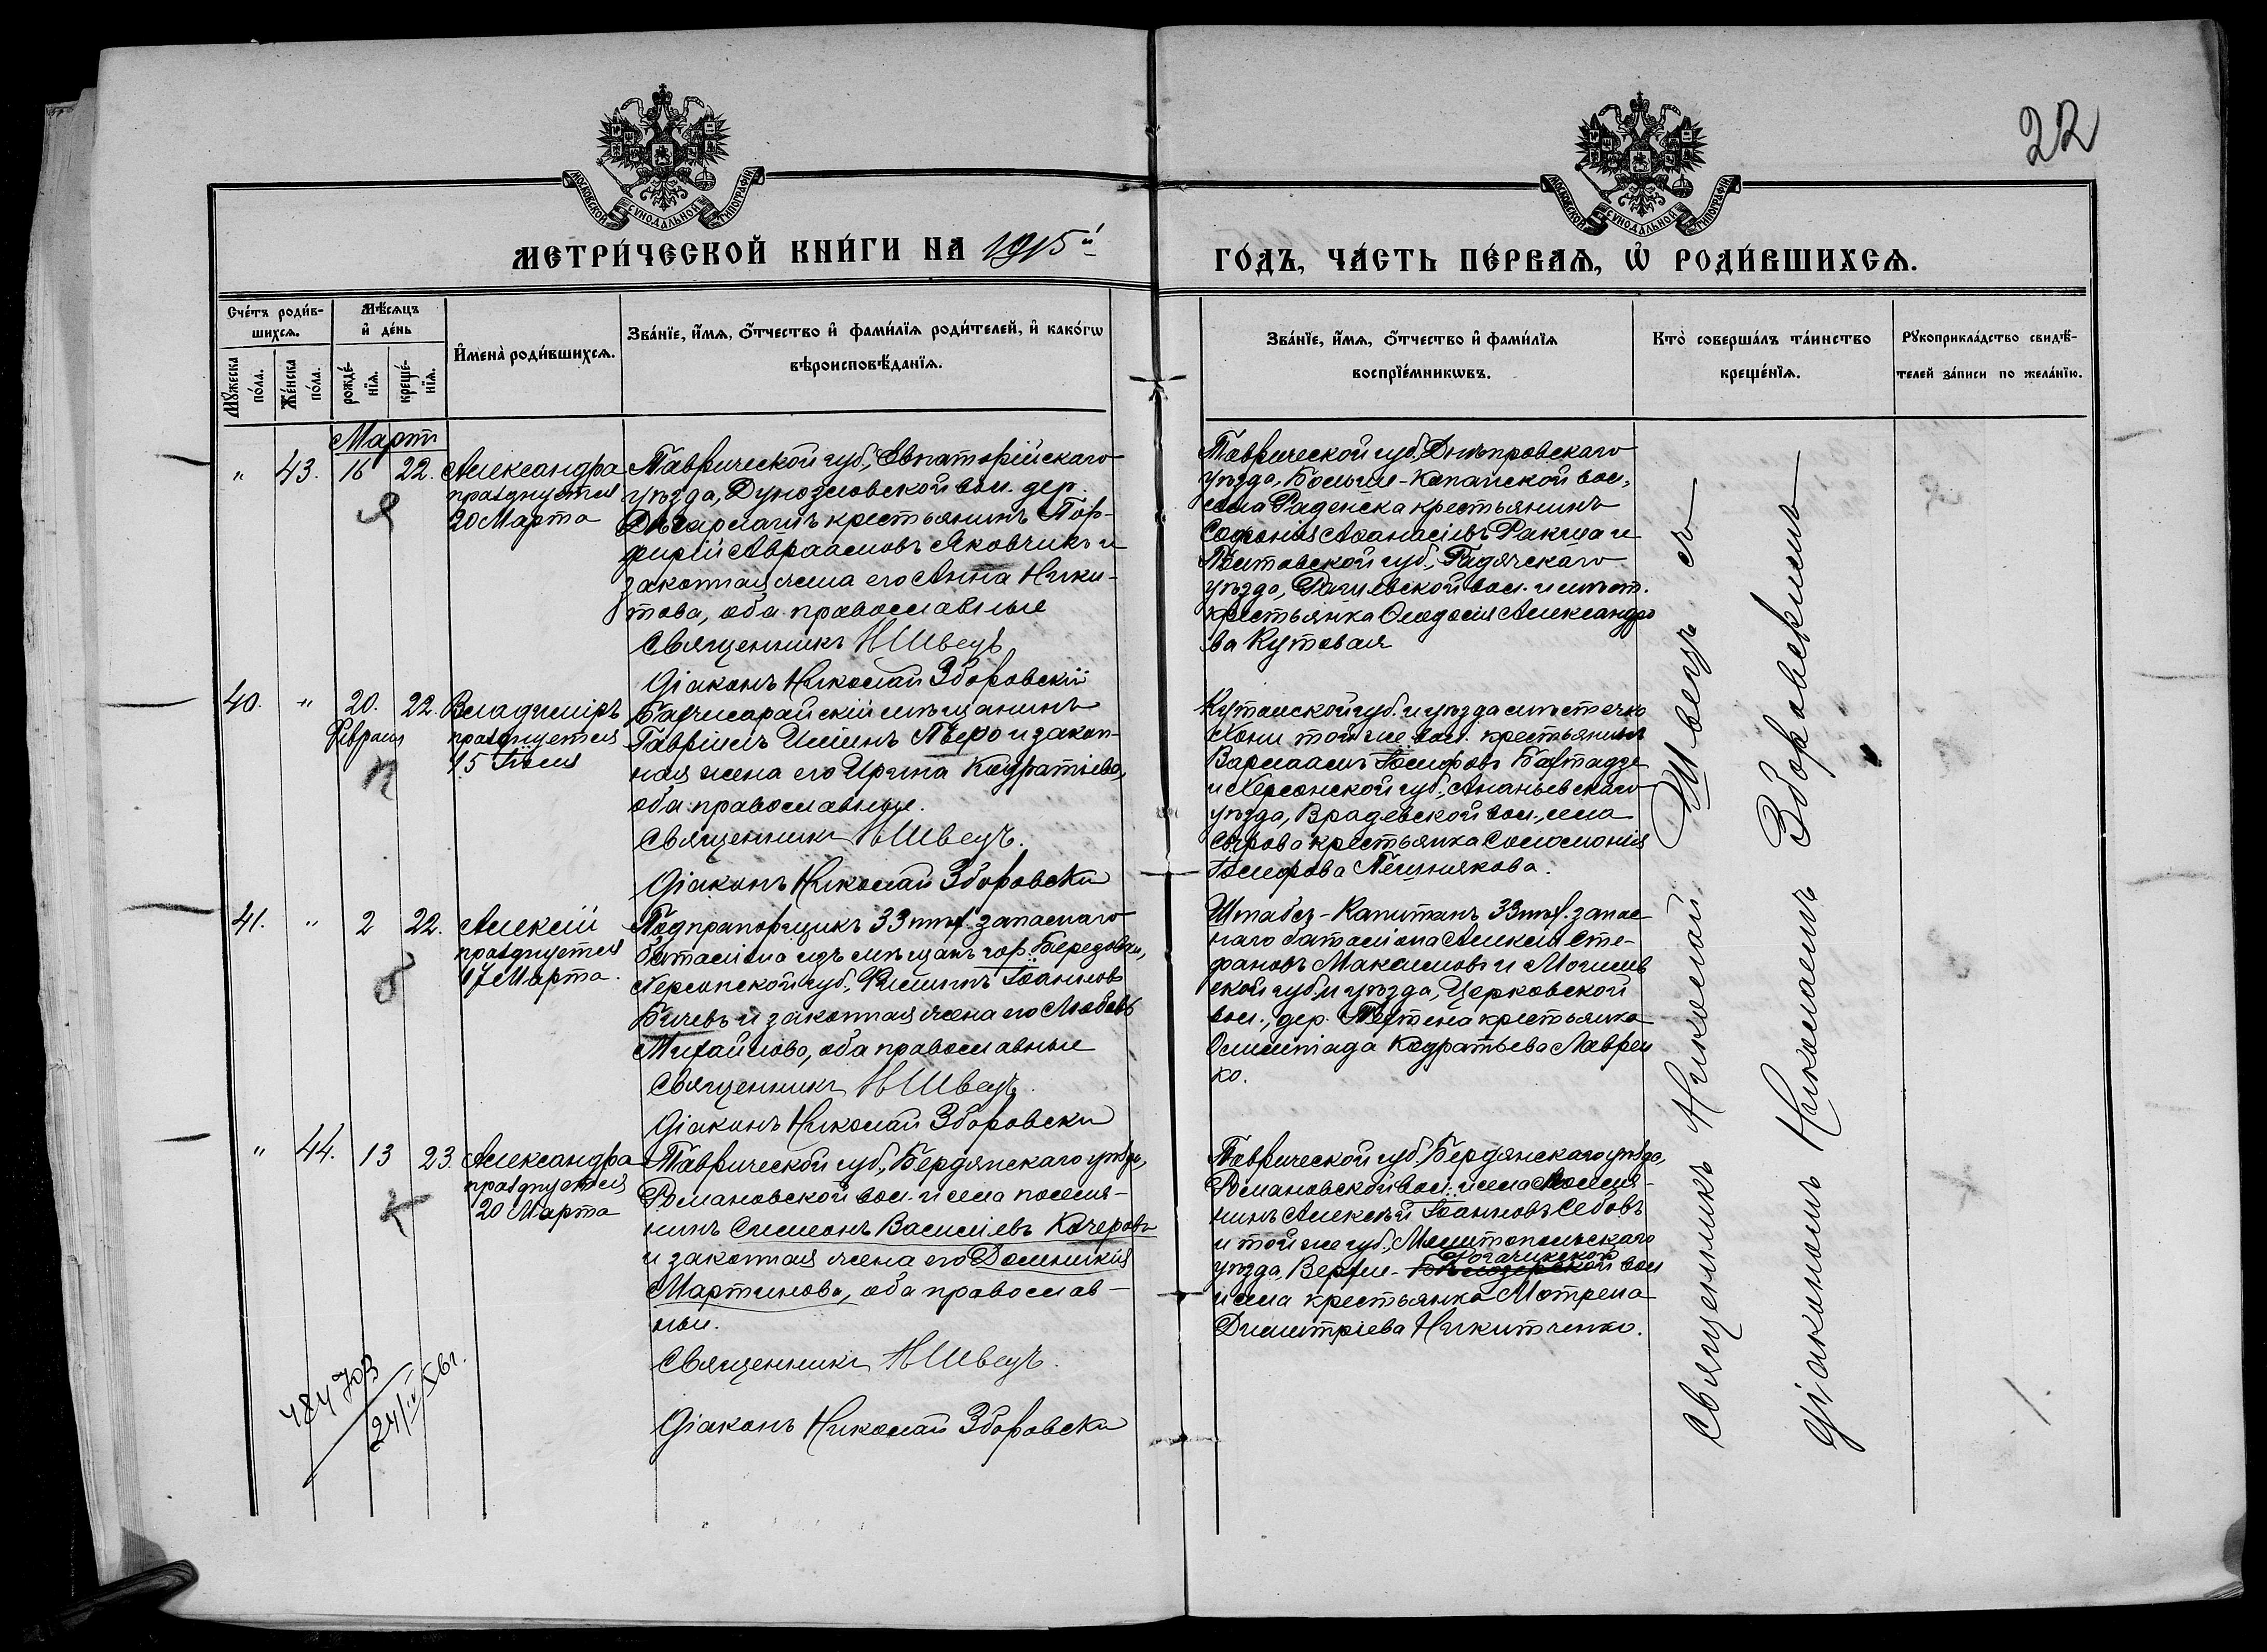 22
МОСКОВСКОЙ СѴНОДАЛЬНОЙ ТИПОГРАФІИ
МОСКОВСКОЙ СѴНОДАЛЬНОЙ ТИПОГРАФІИ
МЕТРИ́ЧЕСКОЙ КНИ́ГИ НА 1915й
ГО́ДЪ, ЧА́СТЬ ПЕ́РВАѦ, Ѡ҆ РОДИ́ВШИХСѦ.
Сче́тъ роди́в-
шихсѧ.
Мꙋ́жеска по́ла.
Же́нска по́ла.
Мѣ́сѧцъ
и҆ де́нь
рожде́-
нїѧ.
креще́-
нїѧ.
И҆мена̀ роди́вшихсѧ.
Зва́нїе, и҆́мѧ, ѻ҆́тчество и҆ фами́лїѧ роди́телей, и҆ како́гѡ
вѣроисповѣ́данїѧ.
Зва́нїе, и҆́мѧ, ѻ҆́тчество и҆ фами́лїѧ
воспрїе́мникѡвъ.
Кто̀ соверша́лъ та́инство
креще́нїѧ.
Рꙋкоприкла́дство свидѣ́-
телей за́писи по жела́нїю.
Мартъ
" 43. 16 22.
Я
Александра
празднуется
20 Марта
Таврической губ., Евпаторійскаго
уѣзда, Дунозлавской вол. дер.
крестьянинъ Пор-
фирій Авраамовъ Яковчикъ и
законная жена его Анна Ники-
това, оба православные
Священникъ Н Швецъ
Діаконъ Николай Зборовскій
Таврической губ., Днѣпровскаго
уѣзда, Больше-Копанской вол.,
села Раденска крестьянинъ
Софонія Аѳанасіевъ Ракша и
Полтавской губ., Гадячскаго
уѣзда, Рашевской вол. и мѣст.
крестьянка Ѳеодосія Александро
ва Кутовая
40. " 20. 22.
Февраля
П
Владиміръ
празднуется
15 Іюля
Бахчисарайскій мѣщанинъ
Гавріилъ Ильинъ Перо и закон-
ная жена его Ирина Кодратіева,
оба православные.
Священникъ Н Швецъ.
Діаконъ Николай Зборовски
Кутаиской губ. и уѣзда мѣстечка
Хони той же вол. крестьянинъ
Варлаамъ Іосифовъ Бахтадзе
и Херсонской губ., Ананьевскаго
уѣзда, Врадевской вол., села
Сырова крестьянка Соломонія
Іосифова Плешнякова.
41. " 2 22.
Б
Алексій
празднуется
17 Марта.
Подпрапорщикъ 33 пѣх. запаснаго
баталіона изъ мѣщанъ гор. Березовки,
Херсонской губ., Филиппъ Іоанновъ
Бичевъ и законная жена его Любовь
Михайлова, оба православные
Священникъ Н Швецъ.
Діаконъ Николай Зборовски
Штабсъ-Капитанъ 33 пѣх. запас
наго баталіона Алексій Сте-
фановъ Максимовъ и Могилев
ской губ. и уѣзда, Церковской
вол., дер. крестьянка
Олимпіада Кодратьева Лаврен
ко.
" 44. 13 23.
К
Александра
празднуется
20 Марта
Таврической губ., Бердянскаго уѣзда,
Романовской вол. и села поселя-
нинъ Симеонъ Василіевъ Кочеровъ
и законная жена его Домникія
Мартинова, оба православ-
ные.
Священникъ Н Швецъ.
Діаконъ Николай Зборовски
Таврической губ. Бердянскаго уѣзда,
Романовской вол. и села поселя-
нинъ Алексѣй Іоанновъ Седовъ
и той же губ., Мелитопольскаго
Рогачикской
уѣзда, Верхне-Бѣлозерской вол
и села крестьянка Мотрона
Димитріева Никитченко.
Священникъ Николай Швецъ съ
Діакономъ Николаемъ Зборовскимъ
484703
24/II 56г.